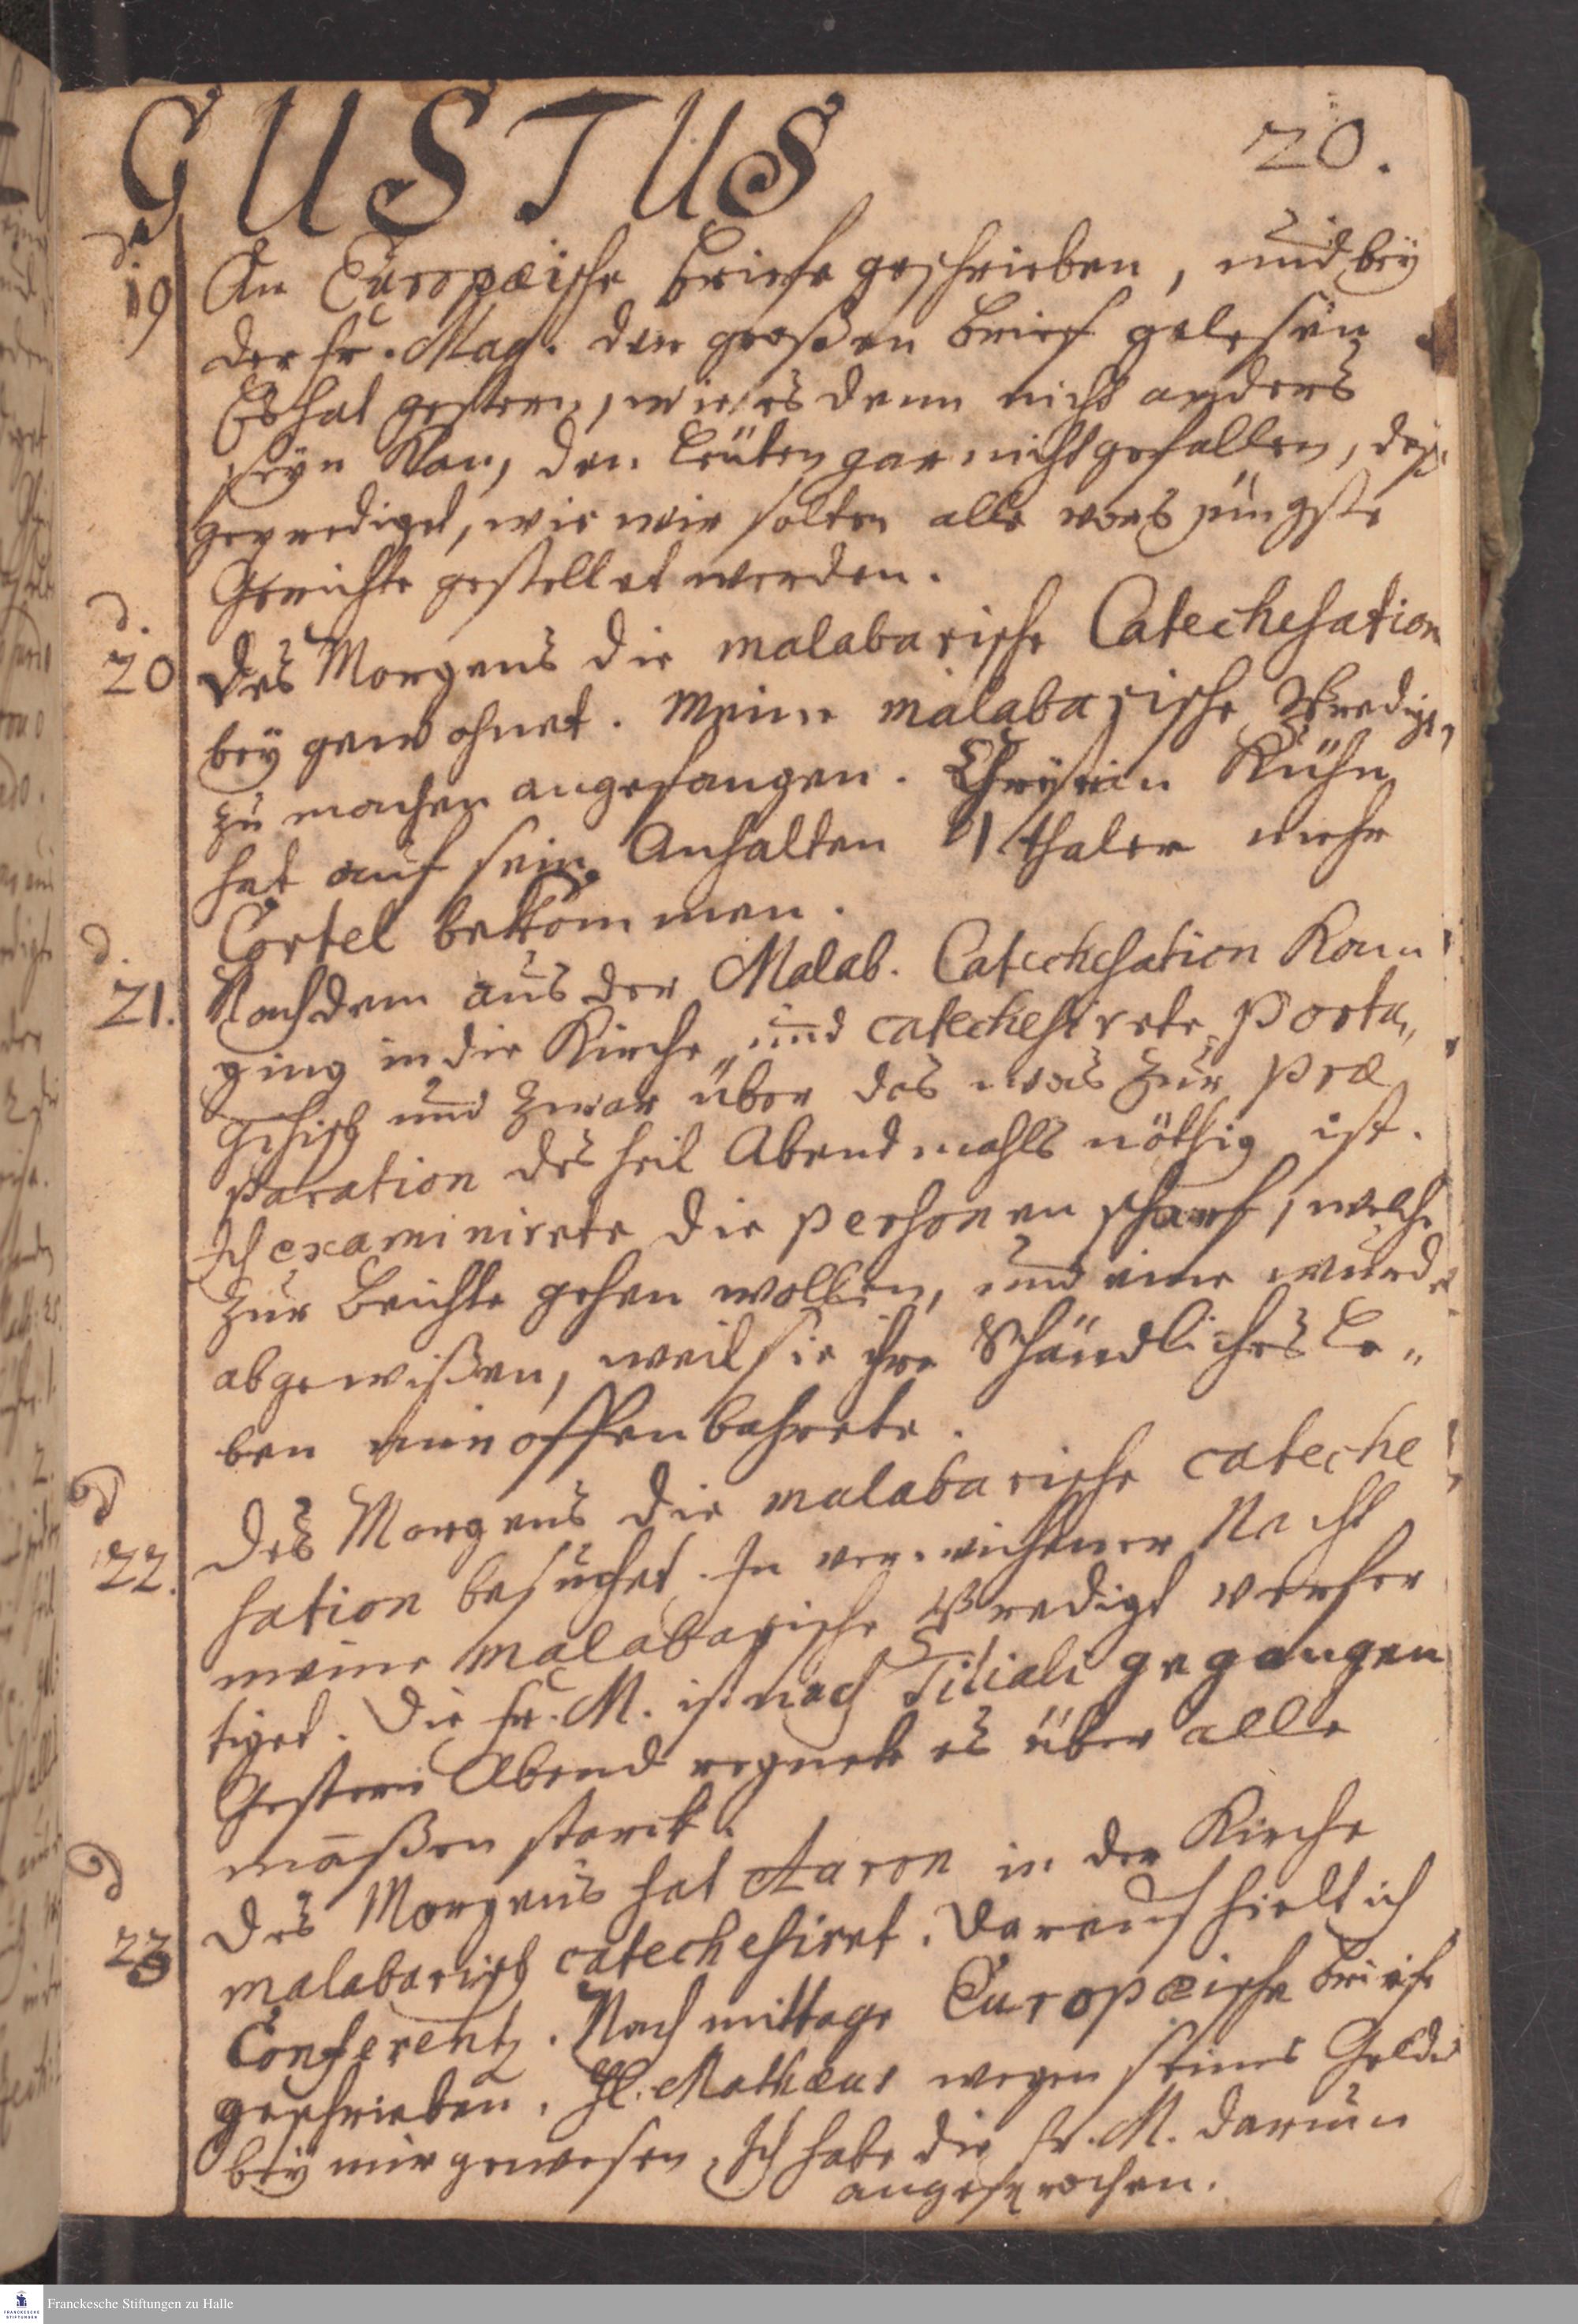 GUSTUS 20.
d.
19 An Europæische briefe geschrieben, und bey
der Fr. Mag. den großen brief gelesen
Es hat gestern, wie es denn nicht anders
seyn kan, den leüten gar nicht gefallen, daß
geprediget, wie wir solten alle vors jüngste
Gerichte gestellet werden.
d.
20 Des Morgens die malabarische Catechesation
beygewohnet. Meine malabarische Predigt
zu machen angefangen. Christian Kühn
hat auf sein Anhalten 1 thaler mehr
Costel bekommen.
d.
21. Nachdem aus der Malab. Catechesation kam
ging in die Kirche und catechesirete Portu„
gesisch und zwar über das was zur præ
paration des heil Abendmahls nöthig ist.
Ich examinirete die personen scharf, welche
zur beichte gehen wollen, und eine wurde
abgewißen, weil sie ihr Schändliches Le„
ben mir offenbahrete.
d
22. Des Morgens die malabarische cateche
sation besuchet. In verwichener Nacht
meine malabarische Predigt verfer
tiget. Die Fr. M. ist nach Tiliali gegangen
Gestern Abend regnete es über alle
maßen starck.
d
23 Des Morgens hat Aaron in der Kirche
malabarisch catechesiret. Darauf hielt ich
Conferentz. Nachmittage Europæische briefe
geschrieben. H. Mathæus wegen seines Geldes
bey mir gewesen, Ich habe die Fr. M. darum
angesprochen.
Franckesche Stiftungen zu Halle
FRANCKESCHE
STIFTUNGEN